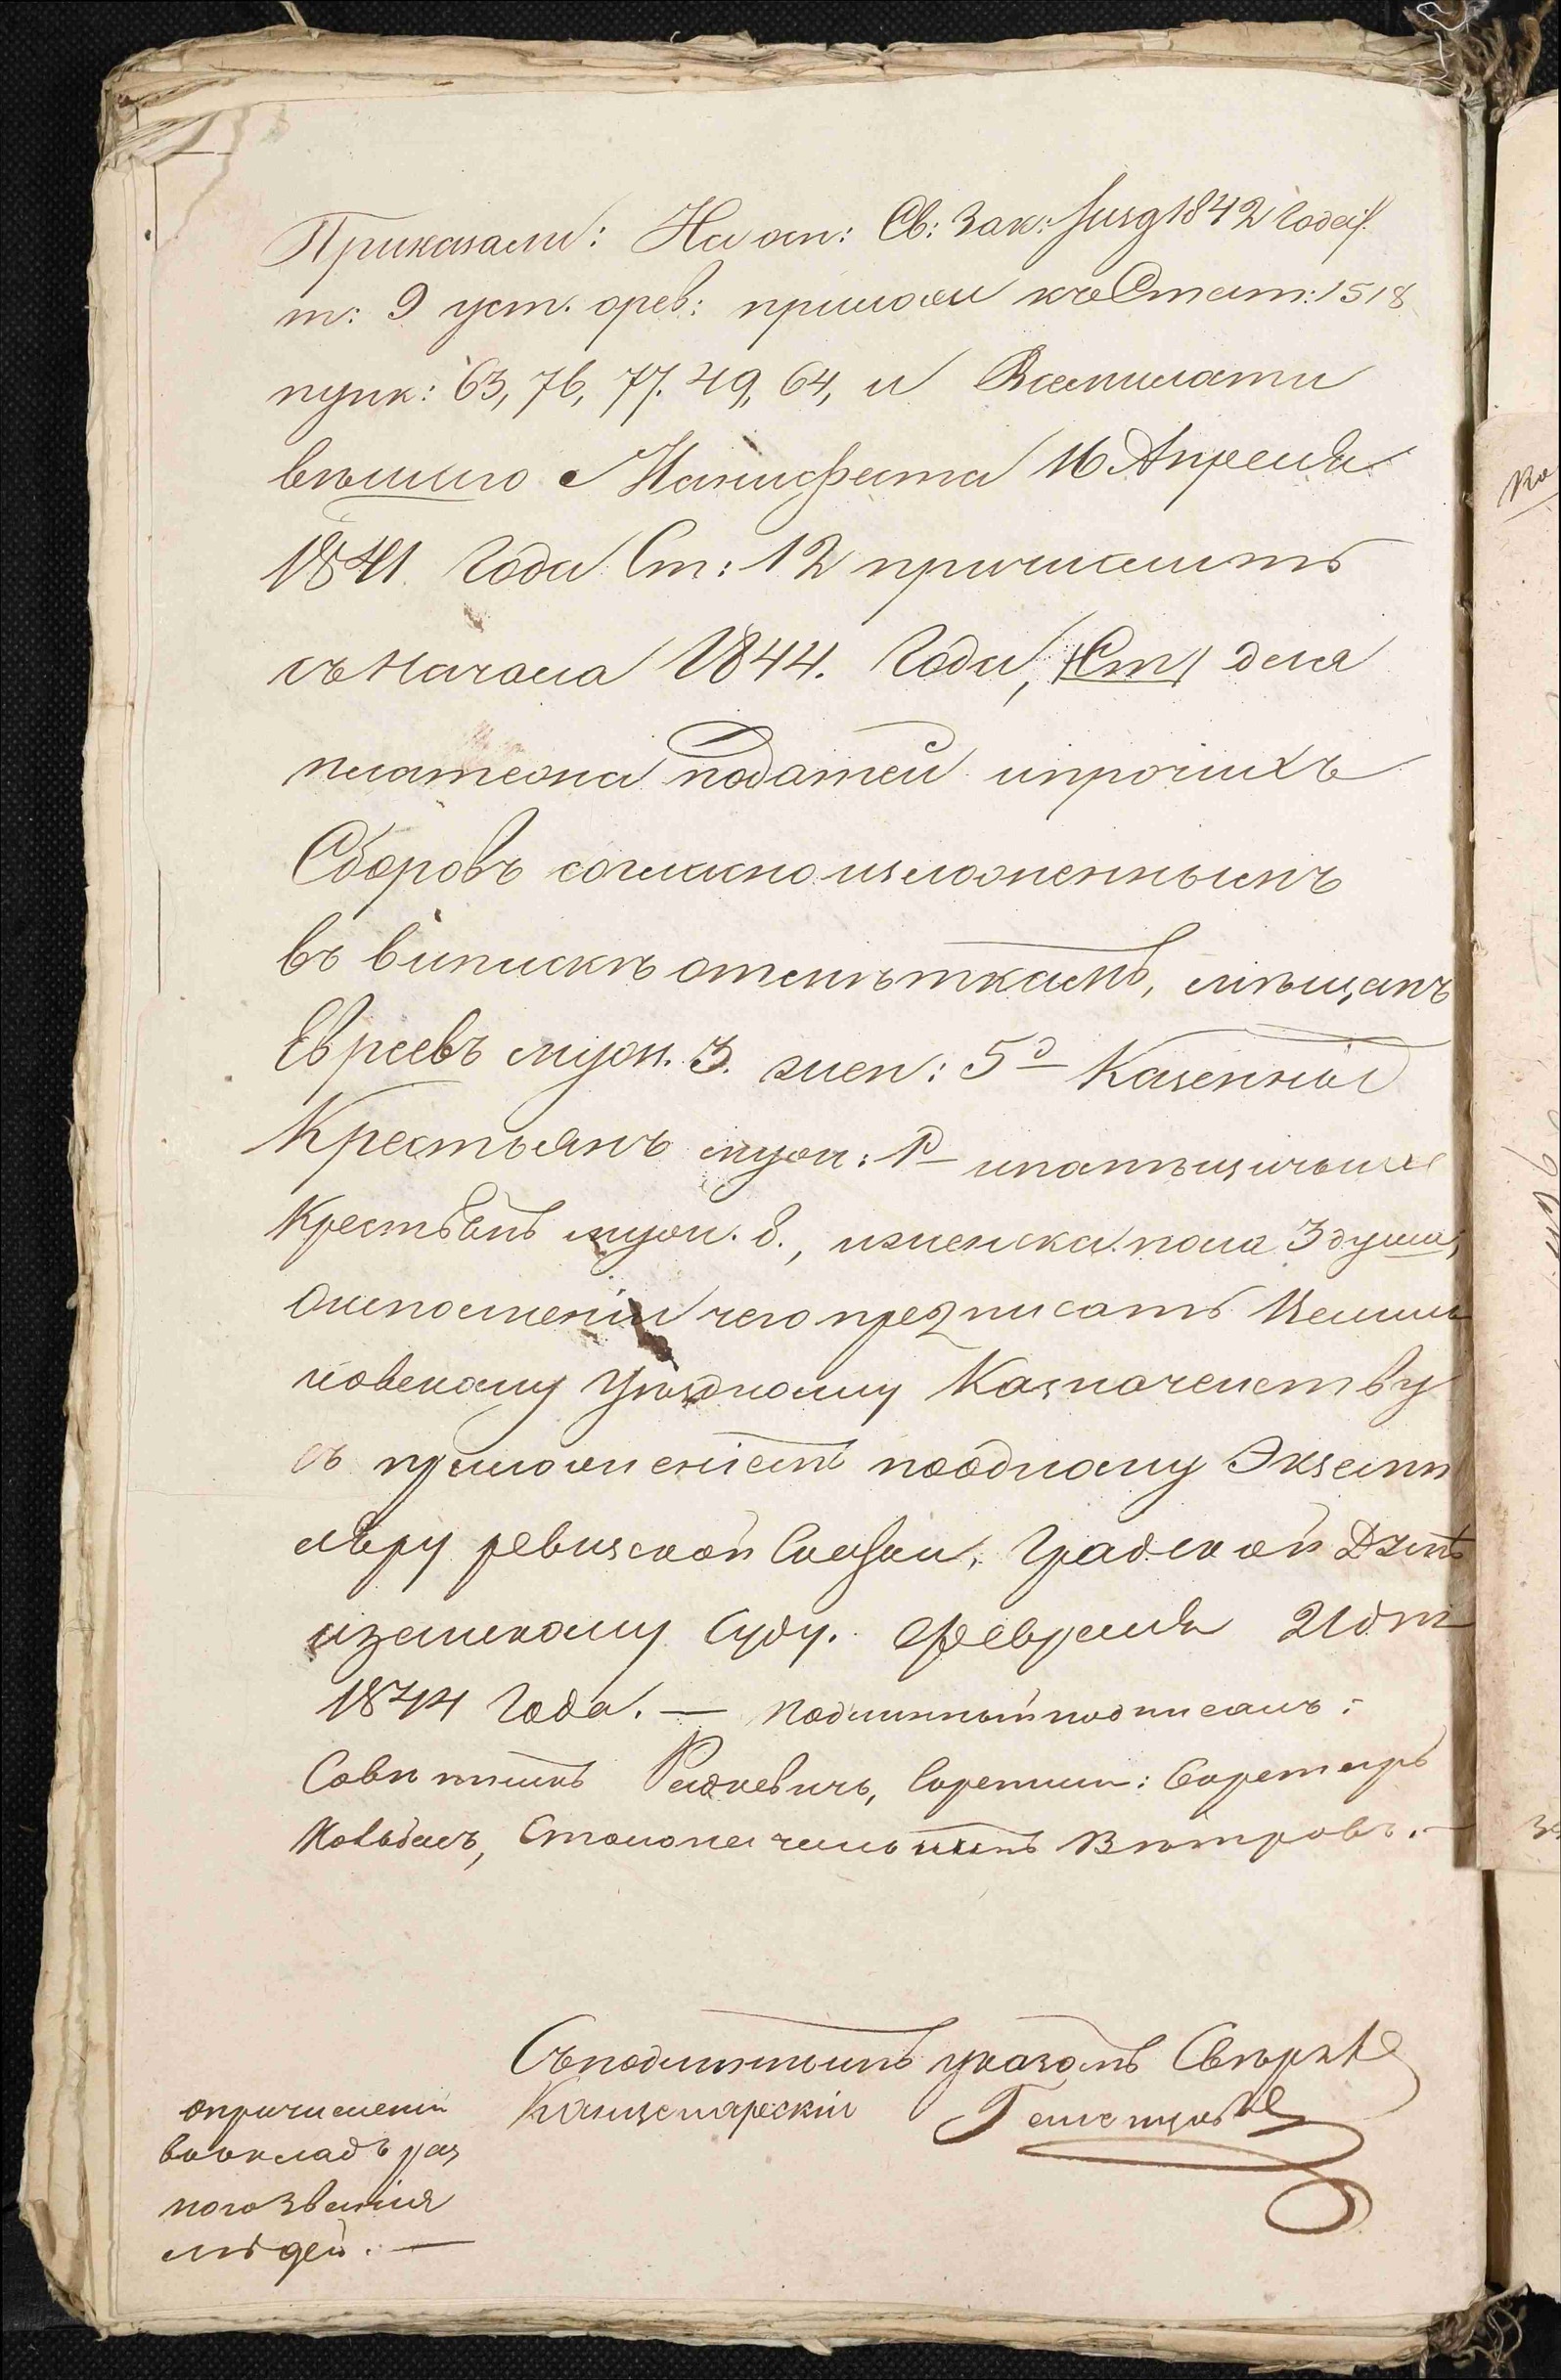 Приказали: На осн: Св: Зак: /изд 1842 года/
т: 9 уст. о рев: прилож къ Стат: 1518
пунк: 63, 76, 77. 49, 64, и Всемилости
вѣйшиго Манифеста 16 Апреля
1841 Года Ст: 12 причислить
съ Начала 1844. Года, для
платежа податей и прочихъ
Сборовъ согласно изложеннымъ
въ выпискѣ отмѣткамъ, мѣщанъ
Евреевъ муж. 3. жен: 5. Казенныхъ
Крестьянъ муж: 1 и помѣщичьихъ
Крестьянъ муж. 8., и женска пола 3 души,
о исполненіи чего предписать
ковскому Уѣздному Казначейству
съ приложеніемъ по одному Экземп
ляру ревизской Сказки, Градской Думѣ
и земскому Суду. Февраля 21 дня
1844 Года. — Подлинный подписалъ:
Совѣтникъ Радкевичъ, Скрепили: Секретарь
Столоначальникъ Вѣтровъ. —
Съ подлиннымъ указомъ Свѣрялъ
Канцелярскій
о причисленіи
въ окладъ раз
ного Званія
людей. —
Ко